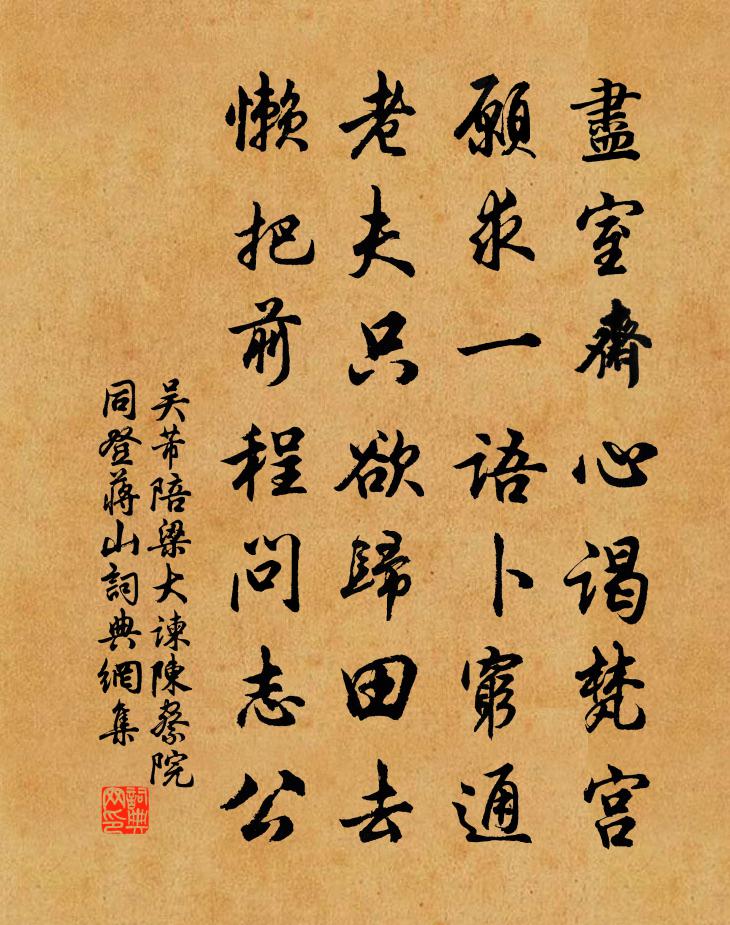 盡室齋心謁梵宮
願求一語卜窮通
老夫只欲歸田去
懶把前程問志公
吴芾陪梁大谏陳察院
同登蔣山詞典網集
詞典網印